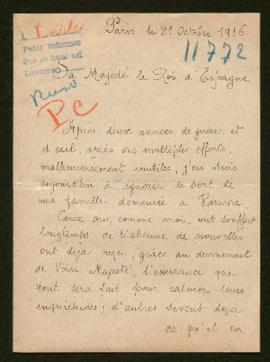 Paris le 21 Octobre 1916
Berlin
Pedir informes
Que se hace así
11772
Sa Majesté le Roi d'Espagne
Ruso
Pc
Après deux années de guerre et
d'exil, après des multiples efforts,
malheureusement inutiles, j'en suis
aujourd'hui à ignorer le sort de
ma famille demeurée à Varsovie.
Ceux qui, comme moi, ont souffert
longtemps de l'absence de nouvelles
ont déjà reçu, grâce au dévouement
de Votre Majesté, l'assurance que
tout sera fait pour calmer leurs
inquiétudes; d'autres savent déjà
ce qu'il en